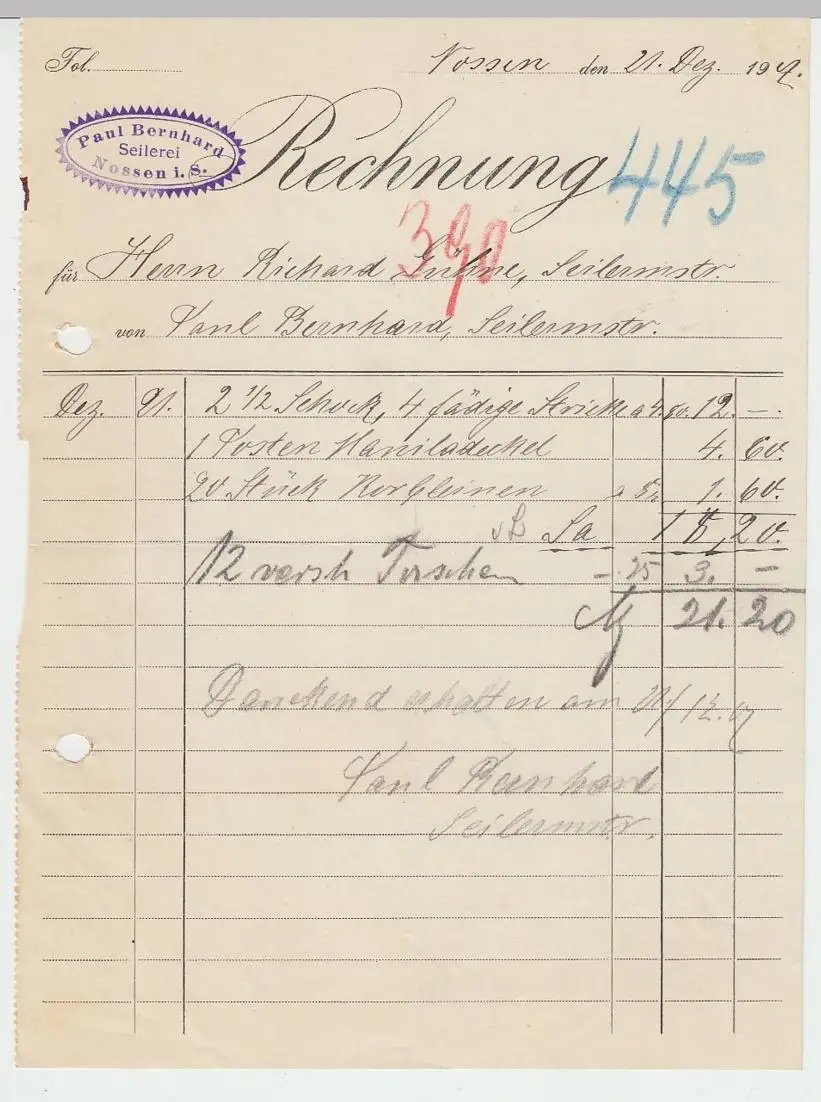 Fol.
Nossen den 21. Dez. 1907.
Paul Bernhard
Seilerei
Nossen i. S.
Rechnung
445
390
für Herrn Richard Gühne, Seilermstr.
von Paul Bernhard, Seilermstr.
Dez. 21. 2 1/2 Schock, 4 fädige Stricke a 4.80. 12. —.
1 Posten Maniladeckel 4. 60.
20 Stück Korbleinen a 1. 60.
Sa 18,20.
12 versch — 25 3. —
M 21. 20
Danckend erhalten am 21/12. 07
Paul Bernhard
Seilermstr.